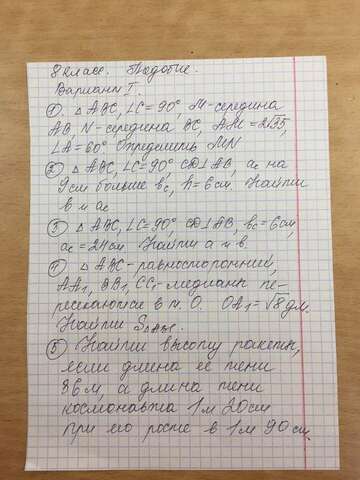 8 класс. Подобие.
Вариант I.
① △ ABC, ∠C=90°, M-середина
AB, N-середина BC, AM=2√35,
∠A=60° Определить MN
② △ ABC, ∠C=90°, CD⊥AB, ac на
9см больше bc, h=6см. Найти
b и ac
③ △ ABC, ∠C=90°, CD⊥AB, bc=6см,
ac=24см Найти a и b.
④ △ ABC-равносторонний,
AA1, BB1, CC1-медианы пе-
ресекающие в т. O. OA1=√8 дм.
Найти
⑤ Найти высоту ракеты,
если длина её тени
36м, а длина тени
космонавта 1м 20см
при его росте в 1м 90см.